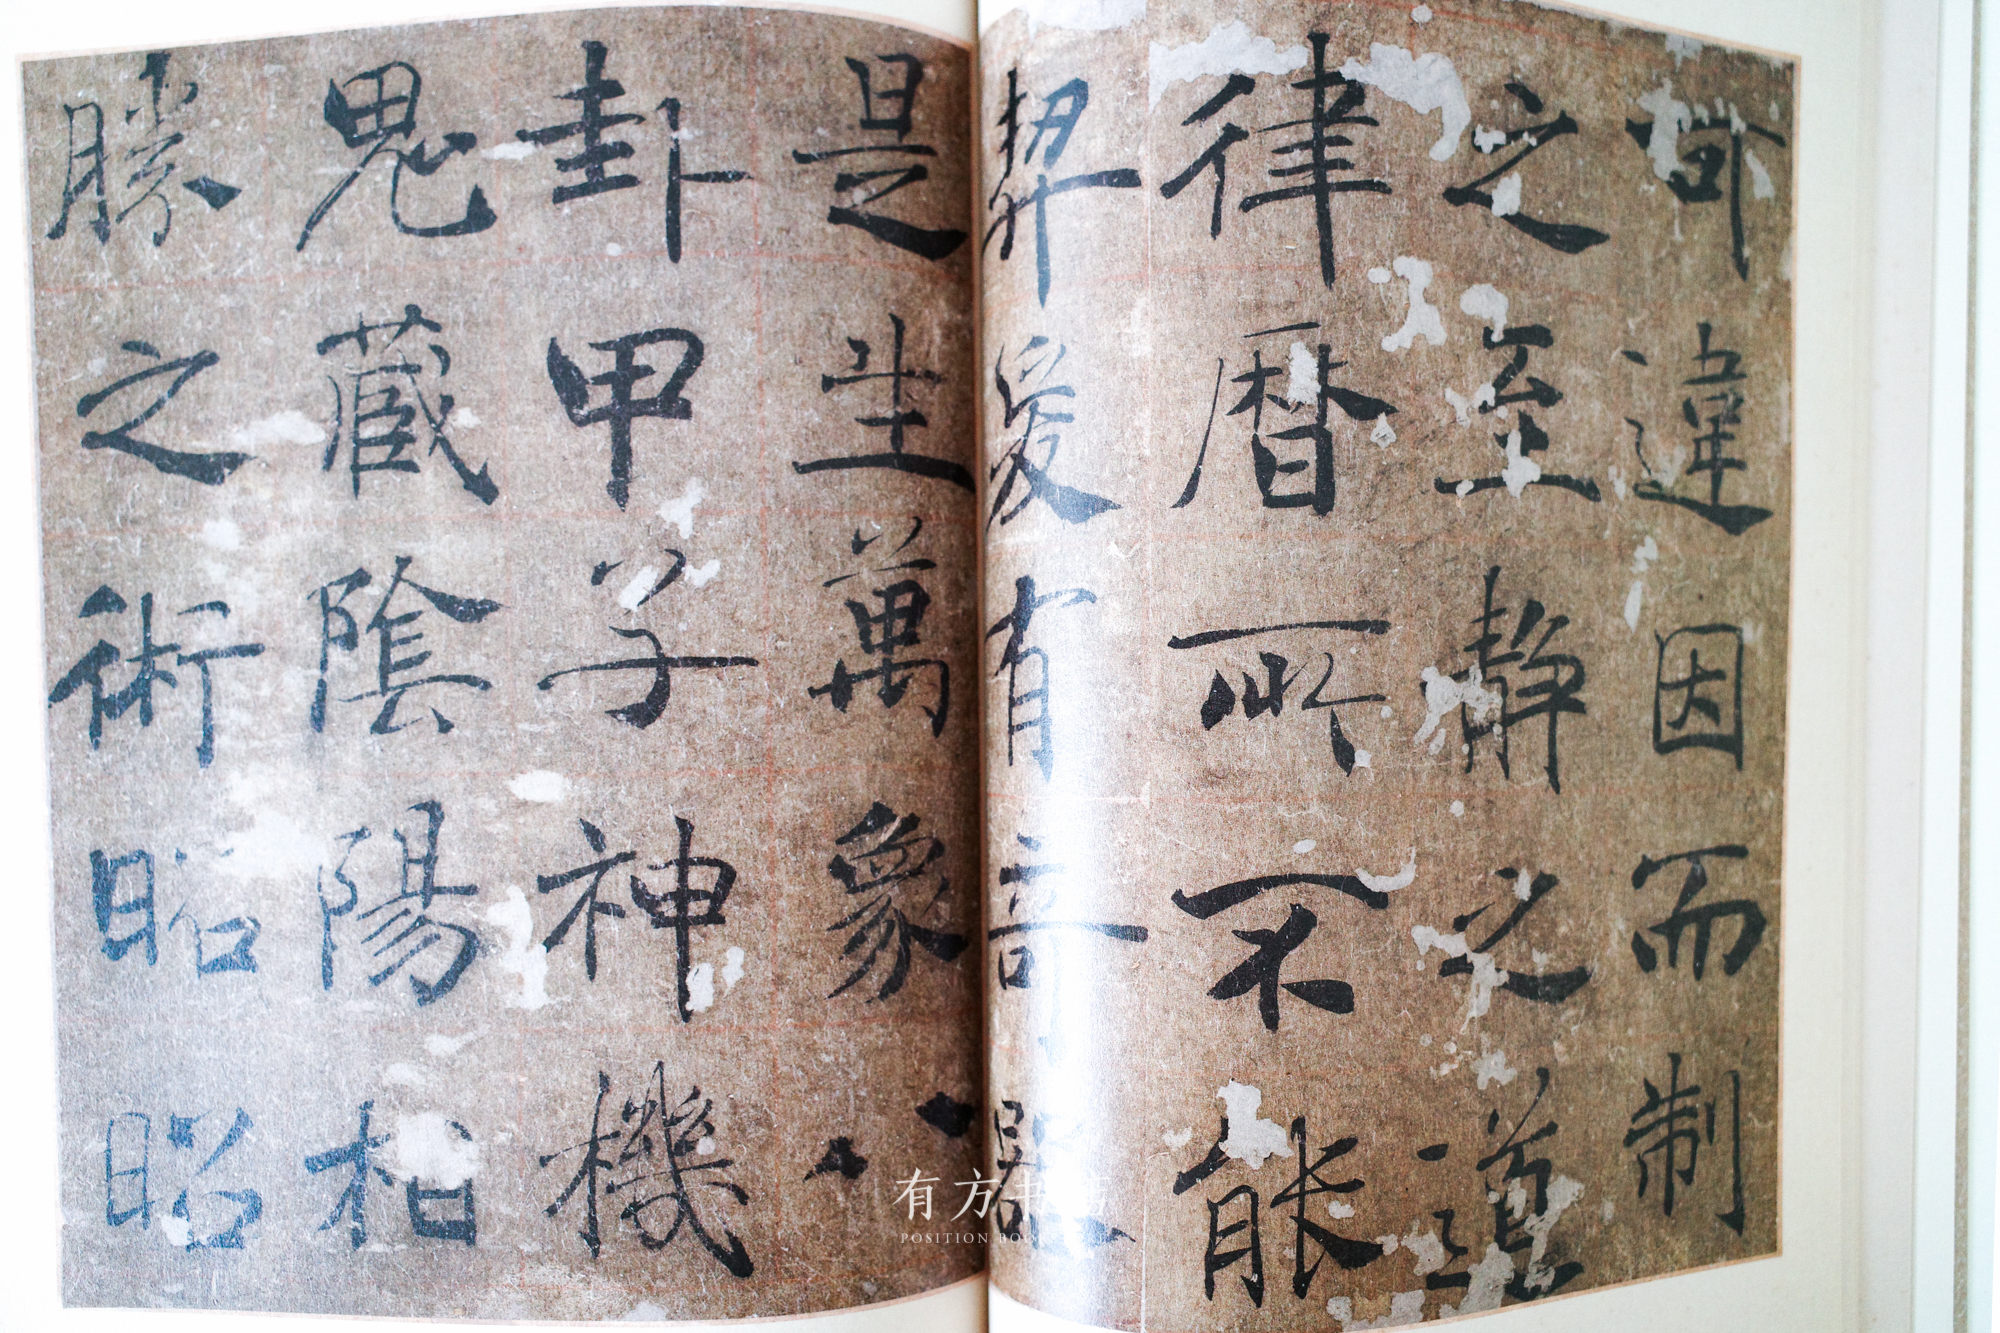 可違因而制
之至静之道
律暦所不能
契爰有奇器
是生萬象八
卦甲子神機
鬼藏陰陽相
勝之術昭昭
有方书店
POSITION BOO